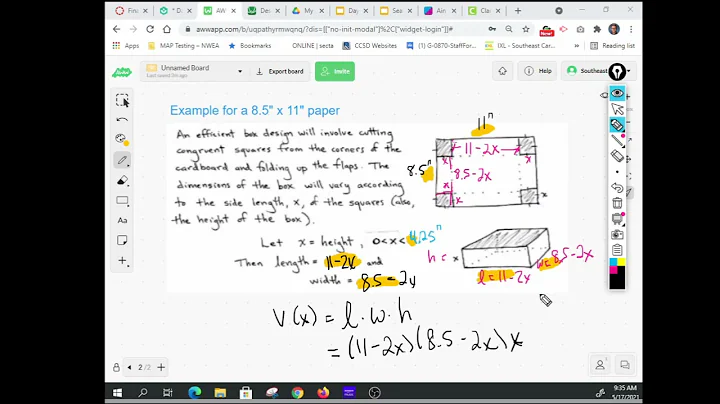 Fina
D
AW
Des
My
Day
Sea
Ain
Cla
awwapp.com/b/uqpathyrmwqnq/?dis=[["no-init-modal"]%2C["widget-login"]]#
Apps
MAP Testing – NWEA
Bookmarks
ONLINES | secta
CCSD Websites
(5) G-0870-StaffFor...
IXL - Carroll Sout...
Reading list
Unnamed Board
Export board
Invite
Help
Southeast
Example for a 8.5" x 11" paper
An efficient box design will involve cutting
congruent squares from the corners of the
cardboard and folding up the flaps. The
dimensions of the box will vary according
to the side length, x, of the squares (also,
the height of the box).
Let x = height, 0<x<4.25"
Then length = 11-2x and
width = 8.5-2x
11"
8.5"
11-2x
8.5-2x
x
x
x
x
x
x
h = x
l = 11-2x
w = 8.5-2x
V(x) = l·w·h
= (11-2x)(8.5-2x)x
2 / 2
9:35 AM
5/17/2021